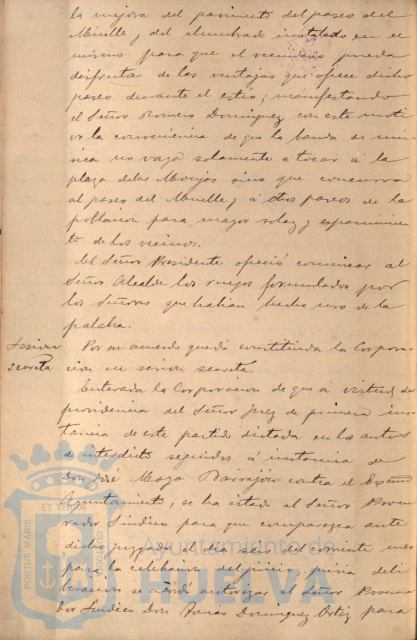 la mejora del pavimento del paseo del
Muelle y del alumbrado instalado en el
mismo para que el vecindario pueda
disfrutar de las ventajas que ofrece dicho
paseo durante el estio; manifestando
el Señor Romero Dominguez con este moti
vo la conveniencia de que la banda de mú
sica no vaya solamente a tocar á la
plaza de las Monjas sino que concurra
al paseo del Muelle y á otros paseos de la
poblacion para mayor solaz y esparcimien
to de los vecinos.
El Señor Presidente ofreció comunicar al
Señor Alcalde los ruegos formulados por
los Señores que habian hecho uso de la
palabra.
Sesion
secreta
Por un acuerdo quedó constituida la Corpora
cion en sesion secreta.
Enterada la Corporacion de que á virtud de
providencia del Señor Juez de primera ins
tancia de este partido dictada en los autos
de interdicto seguidos á instancia de
Don José Maza Barrajón contra el Excmo
Ayuntamiento, se ha citado al Señor Procu
rador Sindico para que comparezca ante
dicho Juzgado el dia seis del corriente mes
para la celebracion del juicio, previa deli
beracion se acordó autorizar al Señor Procura
dor Sindico Don Dominguez Ortiz para
PORTUS MARIS
ET TERRAE
CUSTODIA
Ayuntamiento de
HUELVA